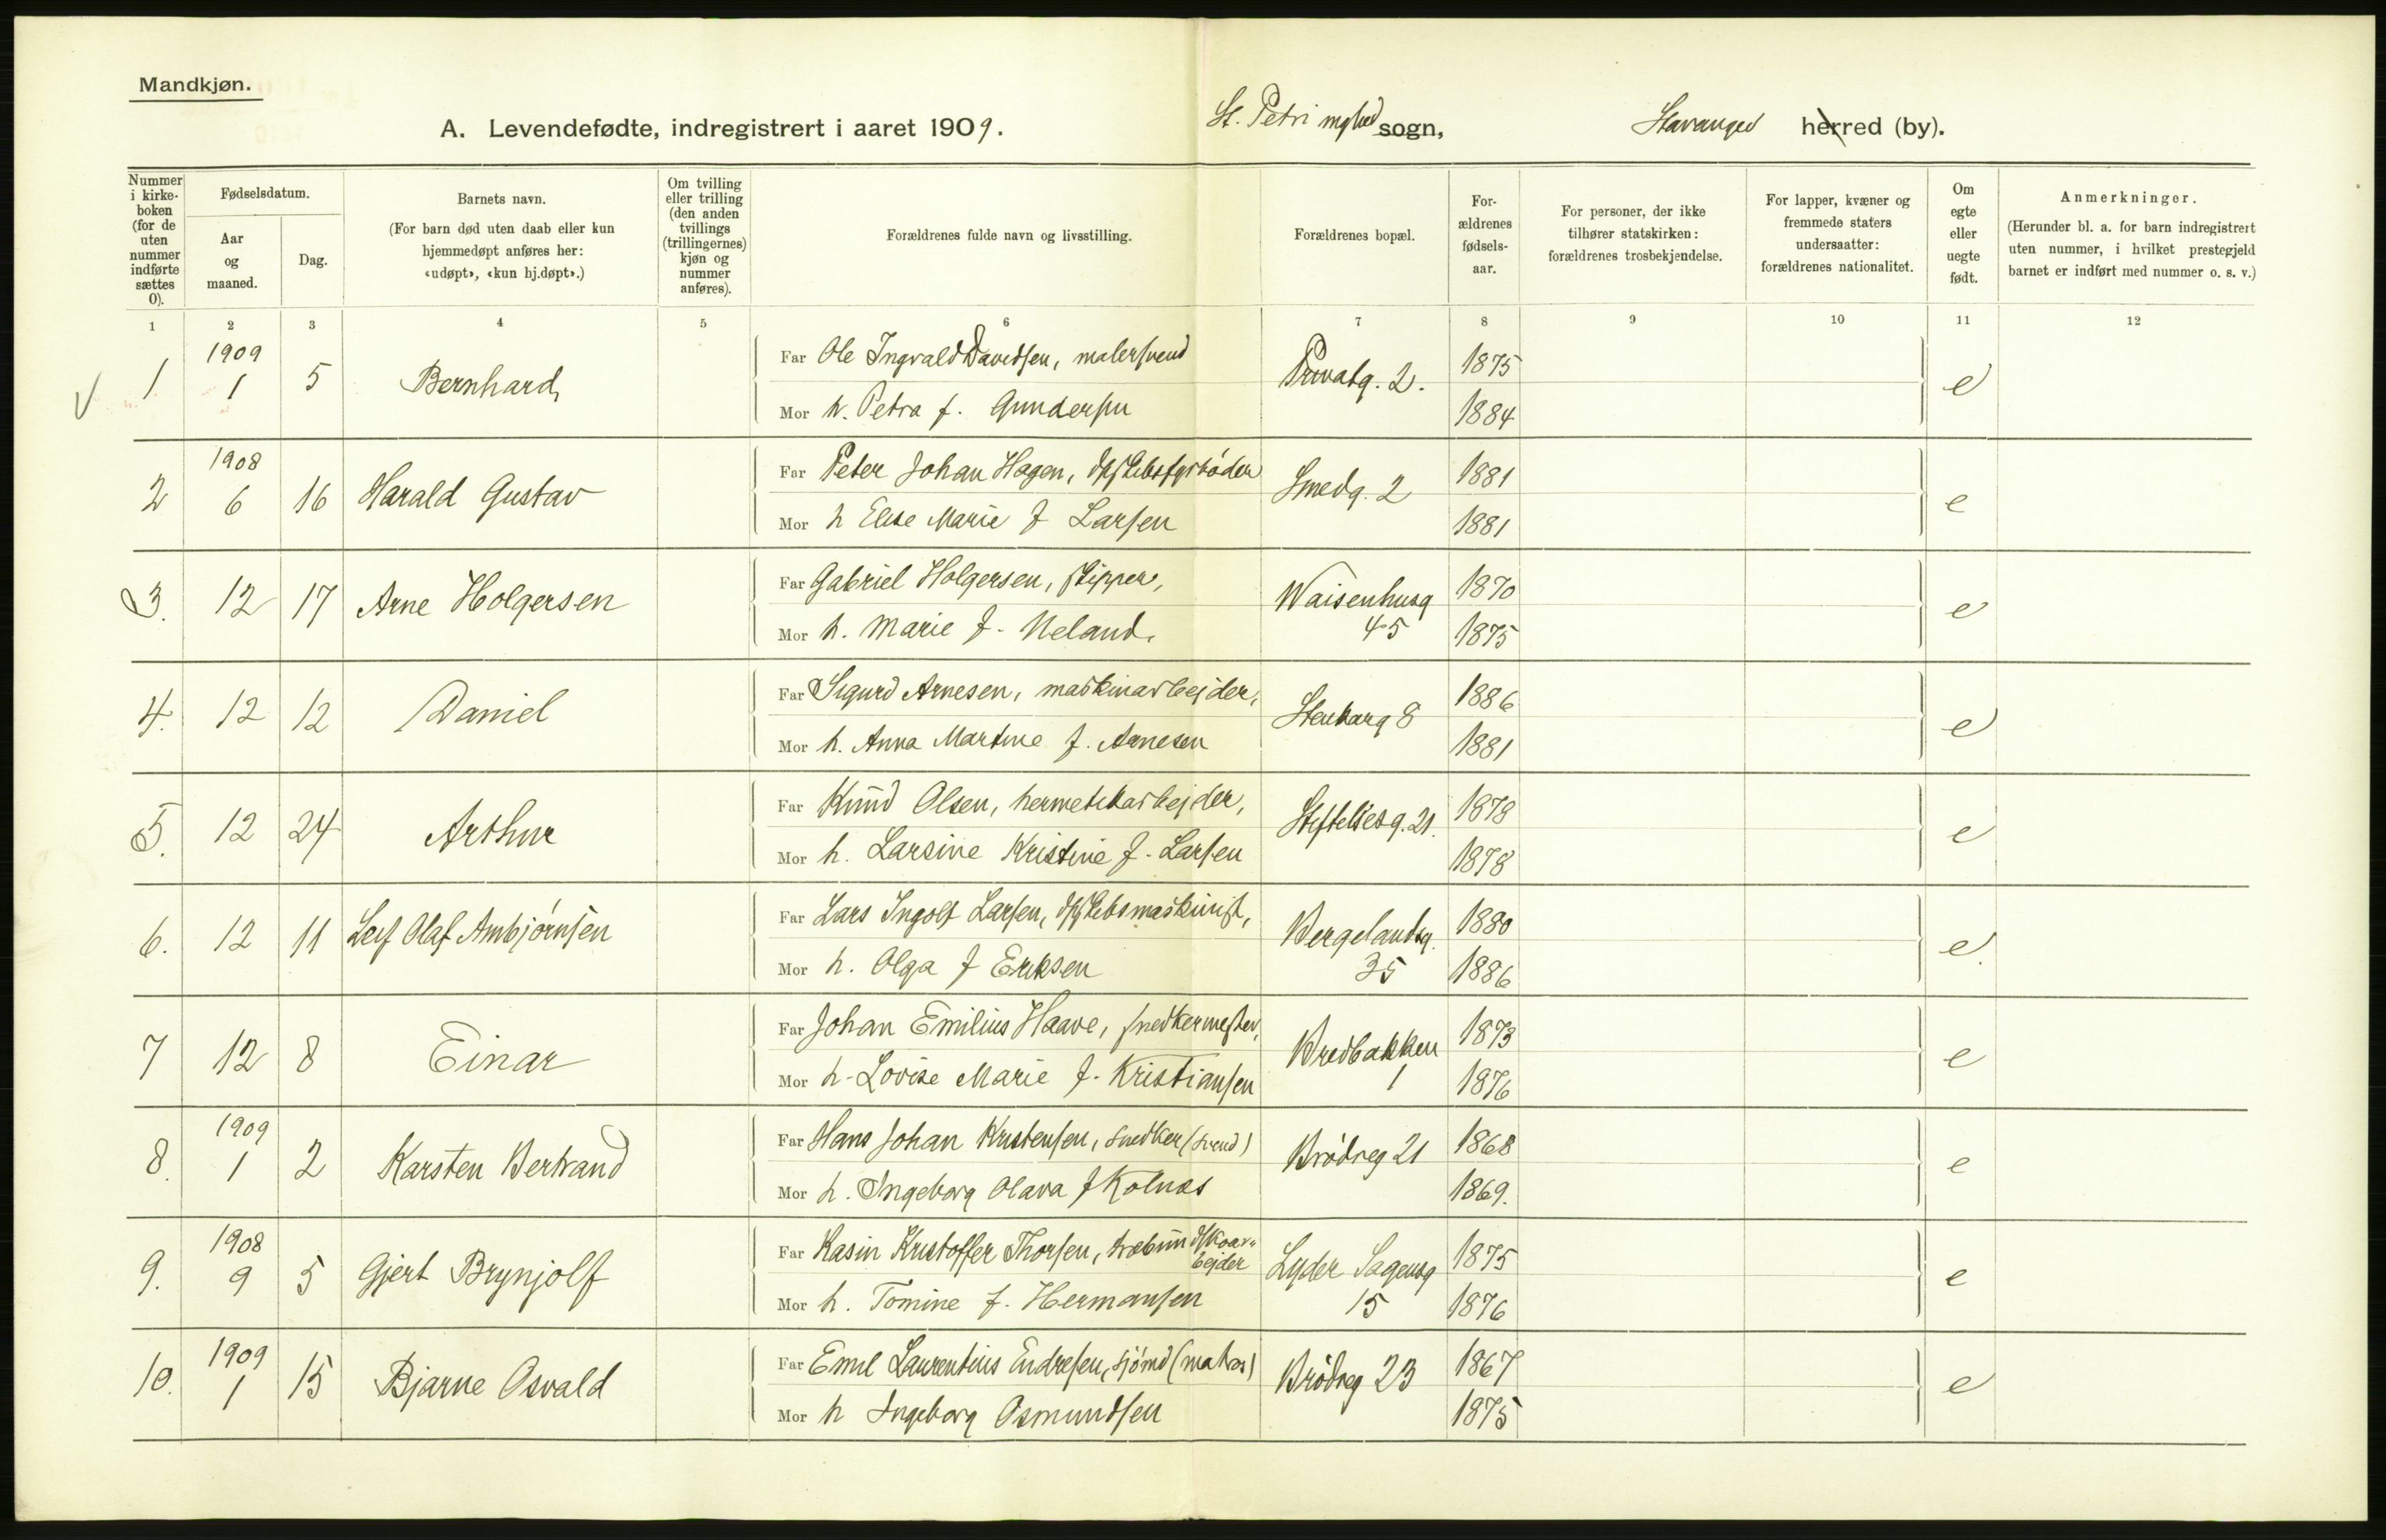 Mandkjøn.
A. Levendefødte, indregistrert i aaret 1909.
St. Petri sogn, Stavanger herred (by).
Nummer i kirkeboken (for de uten nummer indførte sættes 0).
Fødselsdatum.
Aar og maaned.
Dag.
Barnets navn.
(For barn død uten daab eller kun hjemmedøpt anføres her: «udøpt», «kun hj.døpt».)
Om tvilling eller trilling (den anden tvillings (trillingernes) kjøn og nummer anføres).
Forældrenes fulde navn og livsstilling.
Forældrenes bopæl.
Forældrenes fødselsaar.
For personer, der ikke tilhører statskirken: forældrenes trosbekjendelse.
For lapper, kvæner og fremmede staters undersaatter: forældrenes nationalitet.
Om egte eller uegte født.
Anmerkninger.
(Herunder bl. a. for barn indregistrert uten nummer, i hvilket prestegjeld barnet er indført med nummer o. s. v.)
1 2 3 4 5 6 7 8 9 10 11 12
1909
1 1 5 Bernhard
Far Ole Ingvald Davidsen, malersvend Privatg. 2. 1875 e
Mor h. Petra f. Gundersen 1884
1908
2 6 16 Harald Gustav
Far Peter Johan Hagen, Smedg. 2 1881 e
Mor h Elise Marie f Larsen 1881
3. 12 17 Arne Holgersen
Far Gabriel Holgersen, skipper, Waisenhusg 45 1870 e
Mor h. Marie f. Neland. 1875
4. 12 12 Daniel
Far Sigurd Arnesen, maskinarbejder, Stenkarg 8 1886 e
Mor h. Anna Martine f. Arnesen 1881
5. 12 24 Arthur
Far Knud Olsen, hermetikarbejder, Stiftelsesg. 21. 1878 e
Mor h. Larsine Kristine f. Larsen 1878
6. 12 11 Leif Olaf Ambjørnsen
Far Lars Ingolf Larsen, dpskibsmaskinist, Bergelandsg. 35 1880 e.
Mor h. Olga f Eriksen 1886
7 12 8 Einar
Far Johan Emilius Haave, snedkermester, Bredbakken 1 1873 e
Mor h. Lovise Marie f. Kristiansen 1876
1909
8. 1 2 Karsten Bertrand
Far Hans Johan Kristensen, snedker (svend) Brødreg 21 1868 e
Mor h. Ingeborg Olava f Kolnes 1869.
1908
9. 9 5 Gjert Brynjolf
Far Kasin Kristoffer Thorsen, Lyder Sagensg 15 1875 e
Mor h. Tomine f. Hermansen 1876
1909
10. 1 15 Bjarne Osvald
Far Emil Laurentius Endresen, sjømd (matros) Brødreg 23 1867 e
Mor h Ingeborg Osmundsen 1875